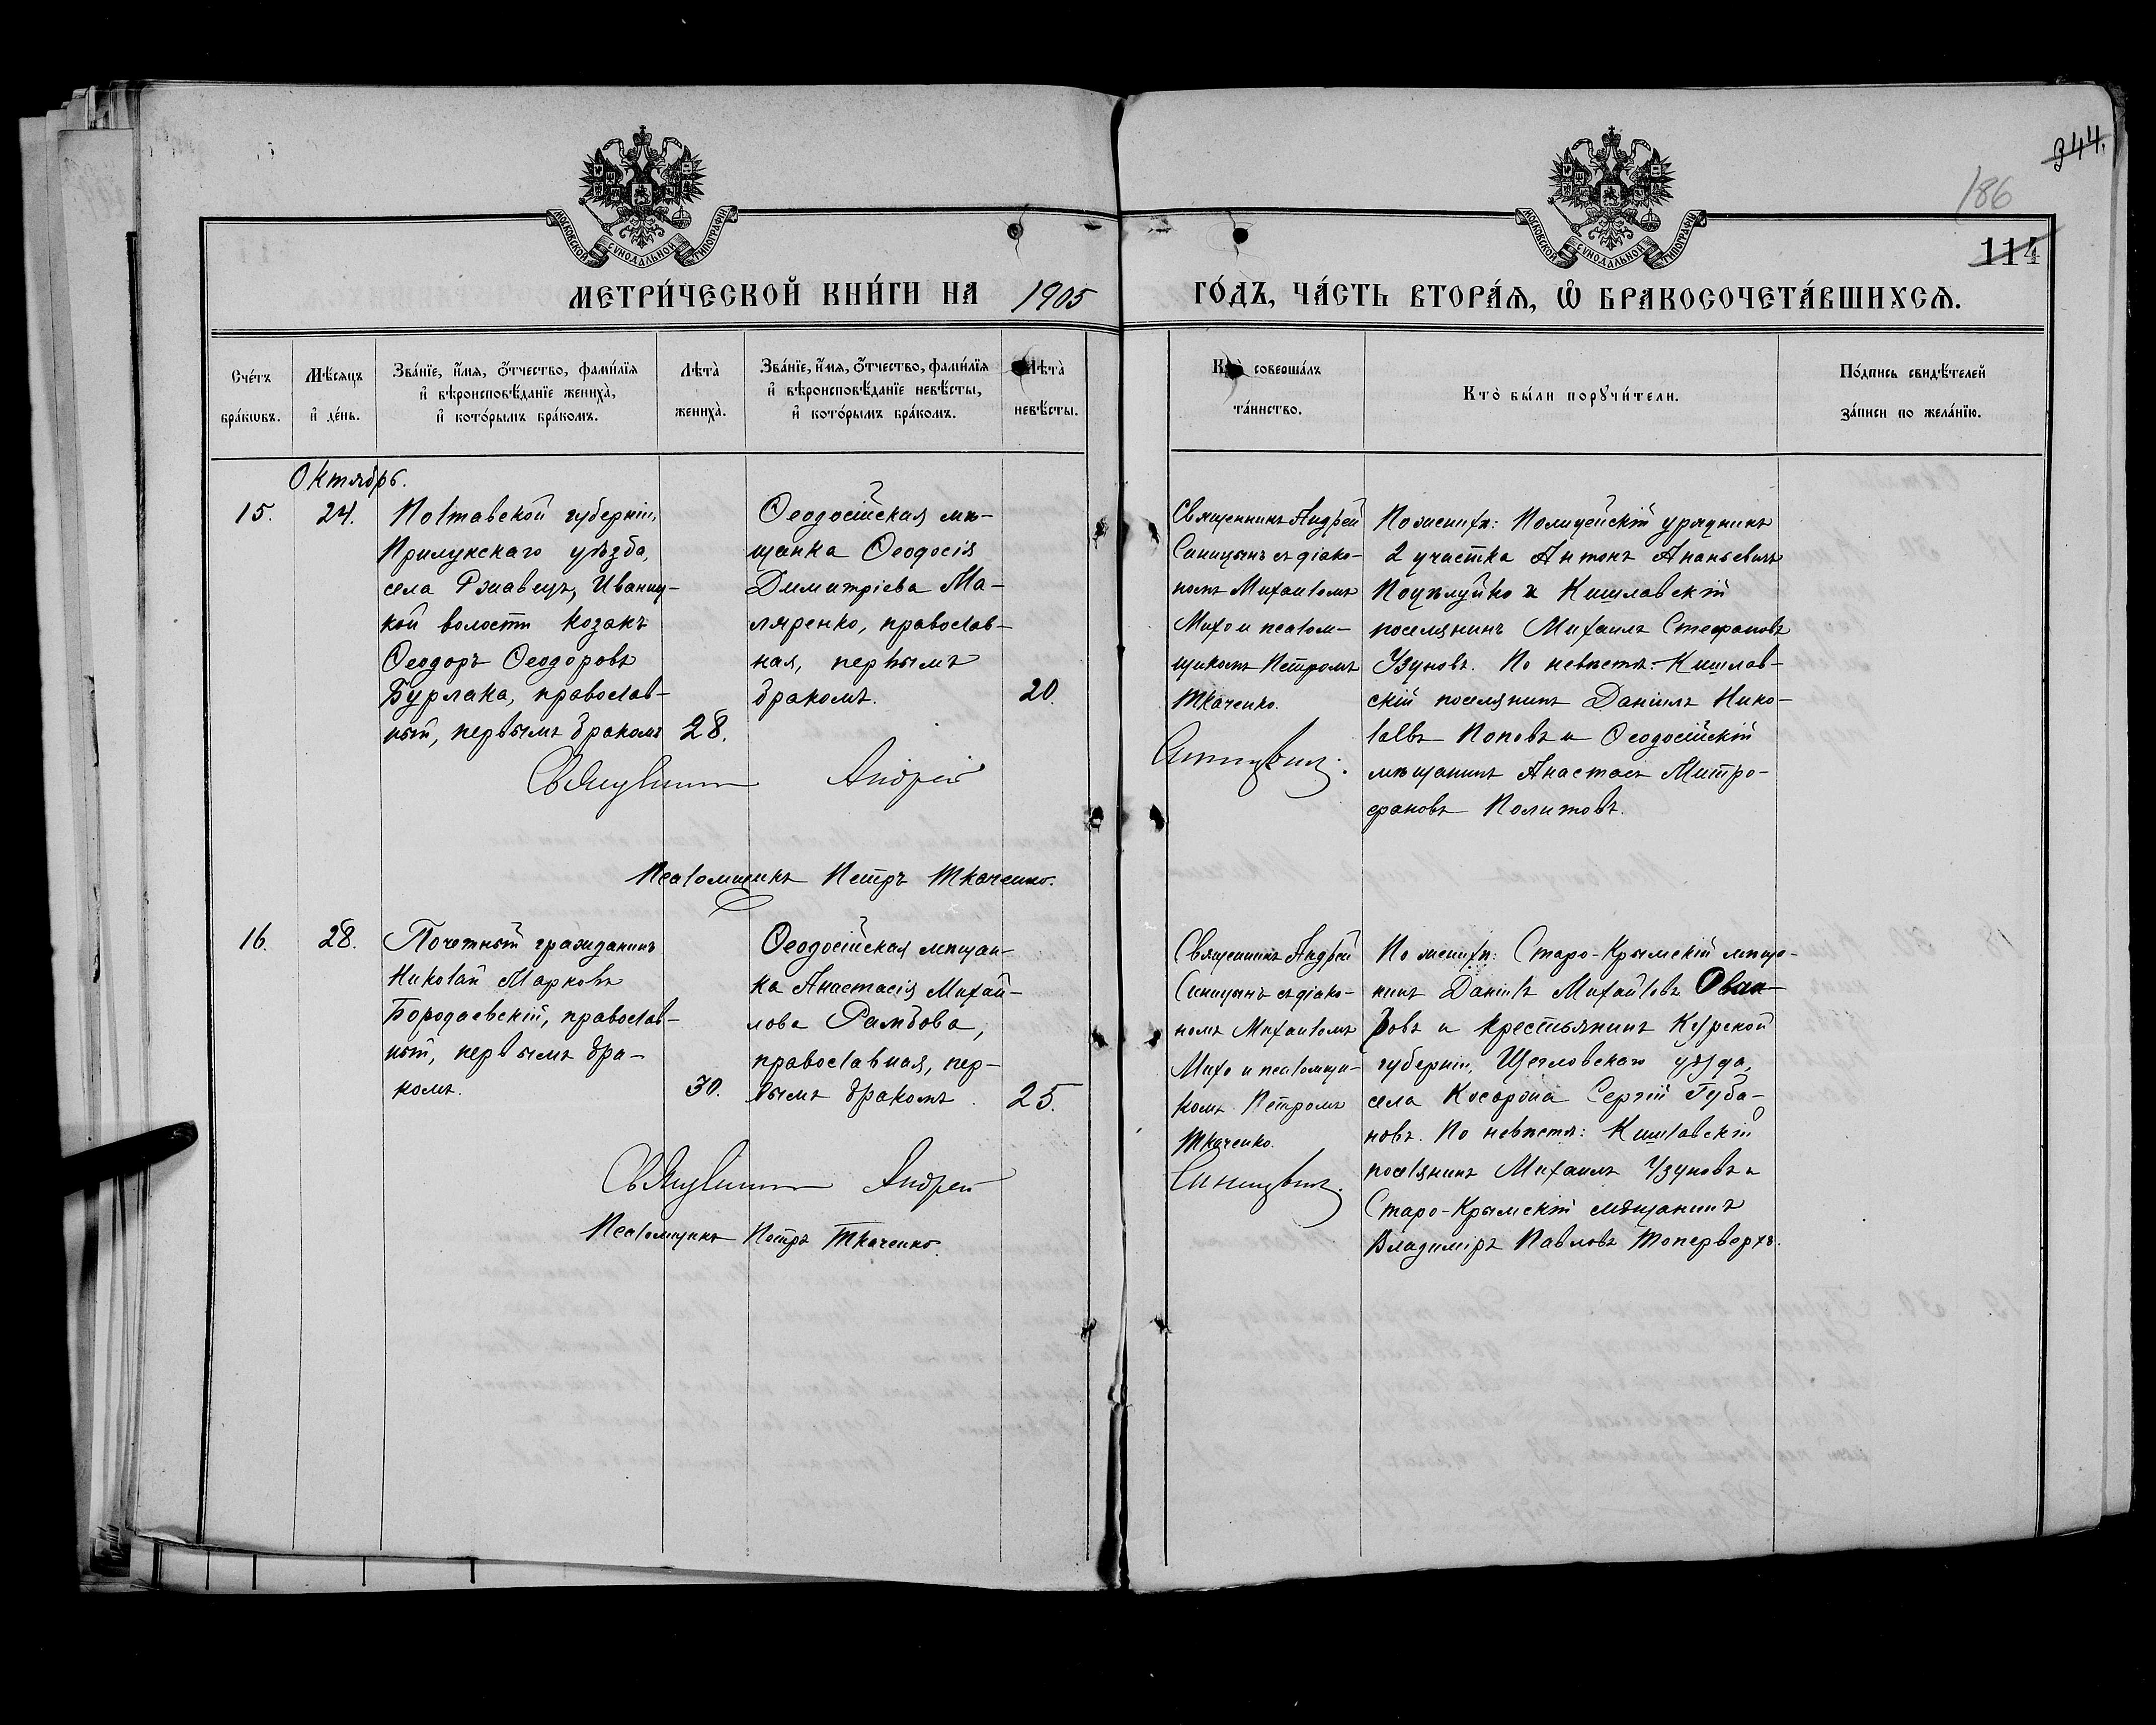 344.
186
114
МОСКОВСКОЙ СѴНОДАЛЬНОЙ ТИПОГРАФІИ
МОСКОВСКОЙ СѴНОДАЛЬНОЙ ТИПОГРАФІИ
МЕТРИ́ЧЕСКОЙ КНИ́ГИ НА 1905 ГО́ДЪ, ЧА́СТЬ ВТОРА́Ѧ, Ѽ БРАКОСОЧЕТА́ВШИХСѦ.
Сче́тъ бра́кѡвъ.
Мѣ́сяцъ и҆ де́нь.
Зва́нїе, и҆́мя, ѻ҆́тчество, фами́лїя
и҆ вѣроисповѣ́данїе женихà,
и҆ кото́рымъ бра́комъ.
Лѣтà женихà.
Зва́нїе, и҆́мя, ѻ҆́тчество, фами́лїя
и҆ вѣроисповѣ́данїе невѣ́сты,
и҆ кото́рымъ бра́комъ.
Лѣтà невѣ́сты.
Ктò соверша́лъ та́инство.
Ктò бы́ли порꙋчи́тели.
По́дпись свидѣ́телей за́писи по жела́нїю.
Октябрь.
15.
24.
Полтавской губерніи,
Прилукскаго уѣзда,
села Ржавецъ, Иваниц-
кой волости козакъ
Ѳеодоръ Ѳеодоровъ
Бурлака, православ-
ный, первымъ бракомъ
28.
Ѳеодосійская мѣ-
щанка Ѳеодосія
Димитріева Ма-
ляренко, православ-
ная, первымъ
бракомъ.
20.
Священникъ Андрей
Синицынъ съ діако-
номъ Михаиломъ
Михо и псалом-
щикомъ Петромъ
Ткаченко.
По женихѣ: Полицейскій урядникъ
2 участка Антонъ Ананьевичъ
Поцѣлуйко и Кишлавскій
поселянинъ Михаилъ Стефановъ
Узуновъ. По невѣстѣ: Кишлав-
скій поселянинъ Даніилъ Нико-
лаевъ Поповъ и Ѳеодосійскій
мѣщанинъ Анастасъ Митро-
фановъ Политовъ.
Священникъ Андрей Синицынъ.
Псаломщикъ Петръ Ткаченко.
16.
28.
Почетный гражданинъ
Николай Марковъ
Бородаевскій, православ-
ный, первымъ бра-
комъ.
30.
Ѳеодосійская мѣщан-
ка Анастасія Михай-
лова Рамбова,
православная, пер-
вымъ бракомъ.
25.
Священникъ Андрей
Синицынъ съ діако-
номъ Михаиломъ
Михо и псаломщи-
комъ Петромъ
Ткаченко.
По женихѣ: Старо-Крымскій мѣща-
нинъ Даніилъ Михайловъ
и крестьянинъ Курской
губерніи, уѣзда,
села Сергій Губа-
новъ. По невѣстѣ: Кишлавскій
поселянинъ Михаилъ Узуновъ и
Старо-Крымскій мѣщанинъ
Владиміръ Павловъ Топерверхъ.
Священникъ Андрей Синицынъ.
Псаломщикъ Петръ Ткаченко.